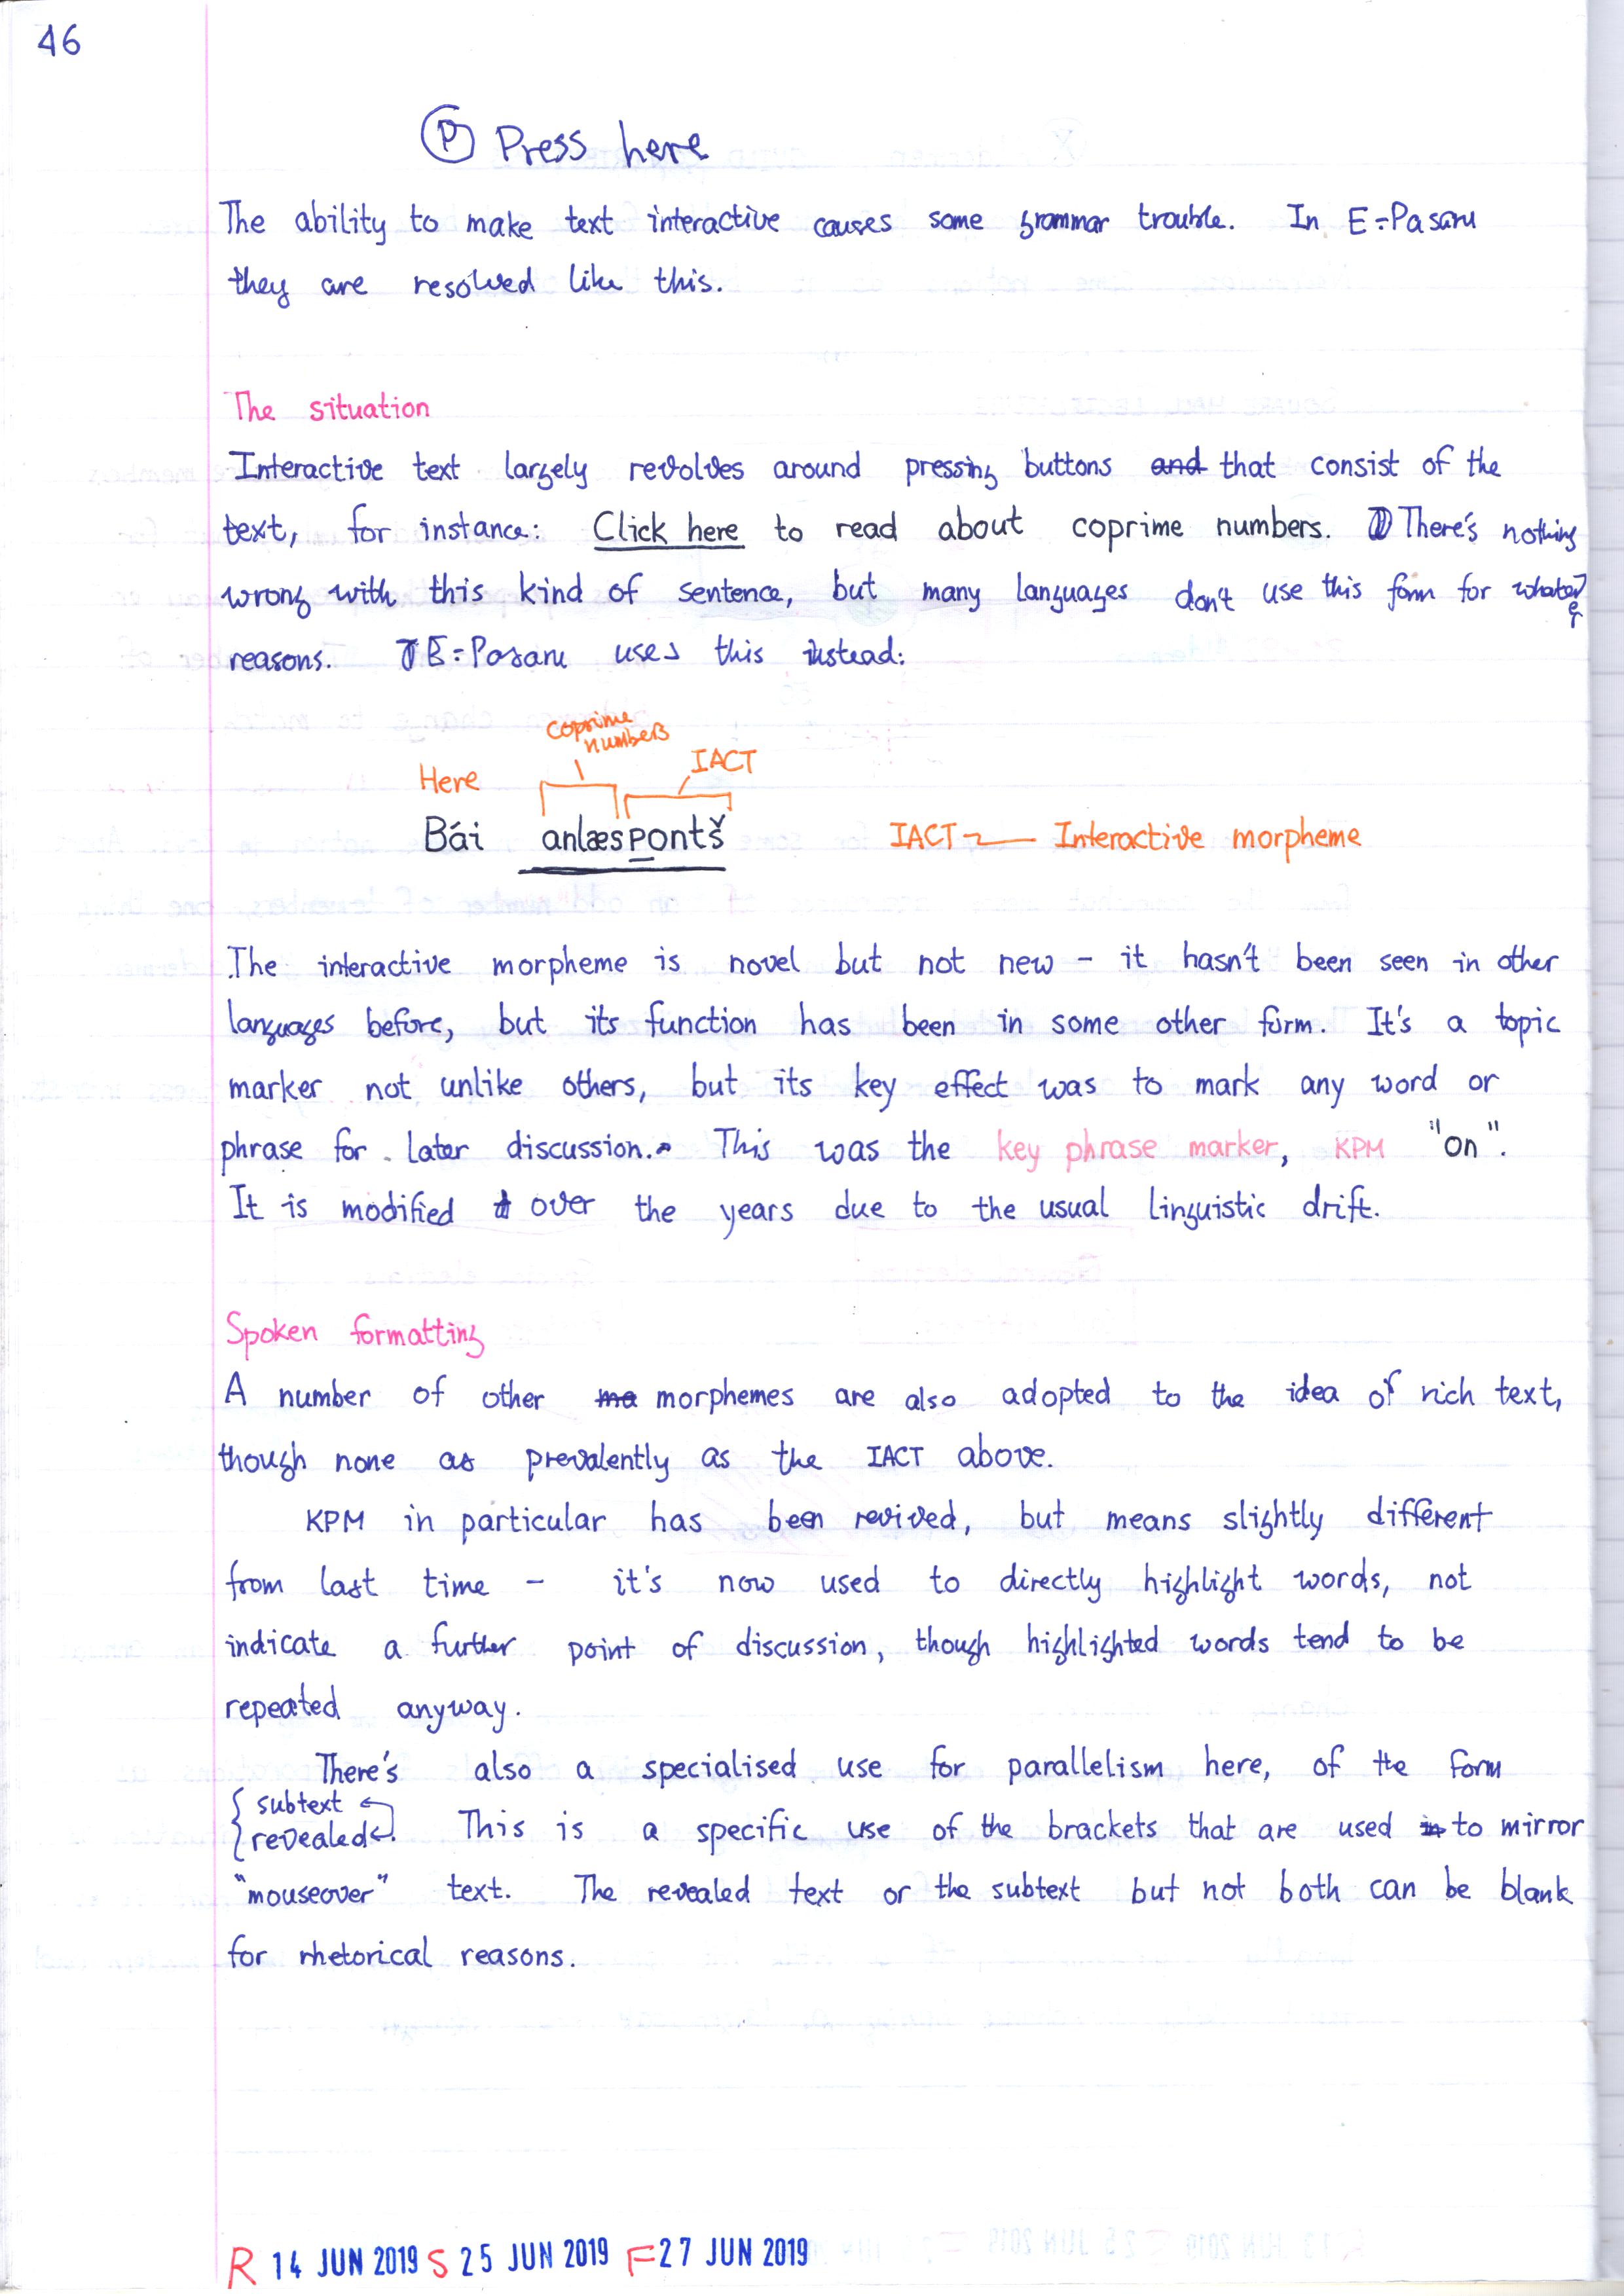 46
P Press here
The ability to make text interactive causes some grammar trouble. In E-Pasaru
they are resolved like this.
The situation
Interactive text largely revolves around pressing buttons and that consist of the
text, for instance: Click here to read about coprime numbers. There's nothing
wrong with this kind of sentence, but many languages don't use this form for whatever
reasons. E-Pasaru uses this instead:
coprime
numbers
Here IACT
Bái anlæspontš IACT — Interactive morpheme
The interactive morpheme is novel but not new - it hasn't been seen in other
languages before, but its function has been in some other form. It's a topic
marker not unlike others, but its key effect was to mark any word or
phrase for later discussion. This was the key phrase marker, KPM "on".
It is modified over the years due to the usual linguistic drift.
Spoken formatting
A number of other ma morphemes are also adopted to the idea of rich text,
though none as prevalently as the IACT above.
KPM in particular has been revived, but means slightly different
from last time - it's now used to directly highlight words, not
indicate a further point of discussion, though highlighted words tend to be
repeated anyway.
There's also a specialised use for parallelism here, of the form
{subtext
{revealed. This is a specific use of the brackets that are used in to mirror
"mouseover" text. The revealed text or the subtext but not both can be blank
for rhetorical reasons.
R 14 JUN 2019 S 25 JUN 2019 F 27 JUN 2019